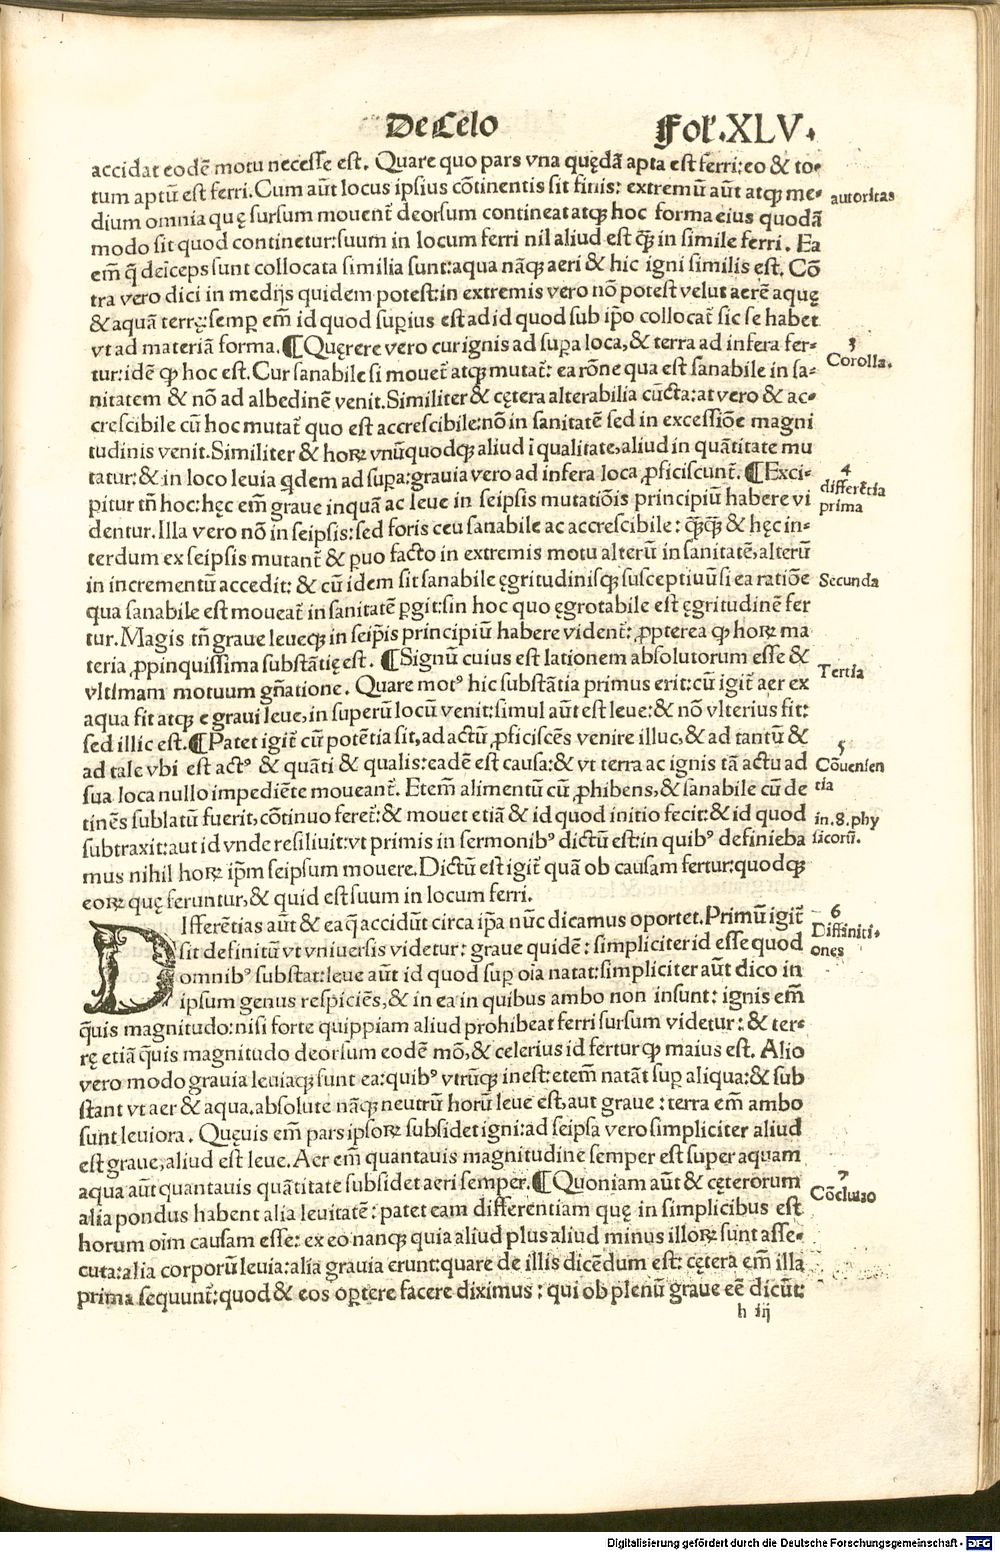 De Celo
Fol'.XLV.
accidat eodē motu necesse est. Quare quo pars vna quędā apta est ferri: eo & to-
tum aptū est ferri. Cum aūt locus ipsius cōtinentis sit finis: extremū aūt atqꝫ me-
dium omnia quę sursum mouent᷑ deorsum contineat atqꝫ hoc forma eius quodā
modo sit quod continetur: suum in locum ferri nil aliud est q̄ꝫ in simile ferri. Ea
em̄ q̄ deīceps sunt collocata similia sunt: aqua nāqꝫ aeri & hic igni similis est. Cō
tra vero dici in medijs quidem potest: in extremis vero nō potest velut aerē aquę
& aquā terrę: semꝑ em̄ id quod suꝑius est ad id quod sub ip̄o collocat᷑ sic se habet
vt ad materiā forma. ¶Quęrere vero cur ignis ad suꝑa loca, & terra ad infera fer-
tur: idē qꝫ hoc est. Cur sanabile si mouet᷑ atqꝫ mutat᷑: ea rōne qua est sanabile in sa-
nitatem & nō ad albedinē venit. Similiter & cętera alterabilia cūcta: at vero & ac-
crescibile cū hoc mutat᷑ quo est accrescibile: nō in sanitatē sed in excessiōe magni
tudinis venit. Similiter & hoꝝ vnūquodqꝫ aliud ī qualitate, aliud in quātitate mu
tatur: & in loco leuia qdem ad suꝑa: grauia vero ad infera loca ꝓficiscunt᷑. ¶Exci-
pitur tn̄ hoc: hęc em̄ graue inquā ac leue in seipsis mutatiōis principiū habere vi
dentur. Illa vero nō in seipsis: sed foris ceu sanabile ac accrescibile: q̄ꝫq̄ꝫ & hęc in-
terdum ex seipsis mutant᷑ & ꝑuo facto in extremis motu alterū in sanitatē, alterū
in incrementū accedit: & cū idem sit sanabile ęgritudinisqꝫ susceptiuū si ea ratiōe
qua sanabile est moueat᷑ in sanitatē ꝑgit: sin hoc quo ęgrotabile est ęgritudinē fer
tur. Magis tn̄ graue leueqꝫ in seip̄is principiū habere vident᷑: ꝓpterea qꝫ hoꝝ ma
teria ꝓpinquissima substātię est. ¶Signū cuius est lationem absolutorum esse &
vltimam motuum gn̄atione. Quare motꝰ hic substātia primus erit: cū igit᷑ aer ex
aqua fit atqꝫ e graui leue, in superū locū venit: simul aūt est leue: & nō vlterius fit:
sed illic est. ¶Patet igit᷑ cū potētia sit, ad actū ꝓficiscēs venire illuc, & ad tantū &
ad tale vbi est actꝰ & quāti & qualis: eadē est causa: & vt terra ac ignis tā actu ad
sua loca nullo impediēte moueant᷑. Etem̄ alimentū cū ꝓhibens, & sanabile cū de
tinēs sublatū fuerit, cōtinuo feret᷑: & mouet etiā & id quod initio fecit: & id quod
subtraxit: aut id vnde resiliuit: vt primis in sermonibꝰ dictū est: in quibꝰ definieba
mus nihil hoꝝ ip̄m seipsum mouere. Dictū est igit᷑ quā ob causam fertur: quodqꝫ
eoꝝ quę feruntur, & quid est suum in locum ferri.
DIfferētias aūt & ea q̄ accidūt circa ip̄a nūc dicamus oportet. Primū igit᷑
sit definitū vt vniuersis videtur: graue quidē: simpliciter id esse quod
omnibꝰ substat: leue aūt id quod suꝑ oīa natat: simpliciter aūt dico in
ipsum genus respiciēs, & in ea in quibus ambo non insunt: ignis em̄
q̄uis magnitudo: nisi forte quippiam aliud prohibeat ferri sursum videtur: & ter-
rę etiā q̄uis magnitudo deorsum eodē mō, & celerius id fertur qꝫ maius est. Alio
vero modo grauia leuiaqꝫ sunt ea: quibꝰ vtrūqꝫ inest: etem̄ natāt suꝑ aliqua: & sub
stant vt aer & aqua. absolute nāqꝫ neutrū horū leue est, aut graue: terra em̄ ambo
sunt leuiora. Quęuis em̄ pars ipsoꝝ subsidet igni: ad seipsa vero simpliciter aliud
est graue, aliud est leue. Aer em̄ quantauis magnitudine semper est super aquam
aqua aūt quantauis quātitate subsidet aeri semper. ¶Quoniam aūt & cęterorum
alia pondus habent alia leuitatē: patet eam differentiam quę in simplicibus est
horum oīm causam esse: ex eo nanqꝫ quia aliud plus aliud minus illoꝝ sunt asse-
cuta: alia corporū leuia: alia grauia erunt: quare de illis dicēdum est: cętera em̄ illa
prima sequunt᷑: quod & eos oꝑtere facere diximus: qui ob plenū graue eē dicūt:
h iij
autoritas
3
Corolla.
4
differētia
prima
Secunda
Tertia
5
Cōuenien
tia
in.8.phy
sicorū.
6
Diffiniti-
ones
7
Cōclusio
Digitalisierung gefördert durch die Deutsche Forschungsgemeinschaft - DFG